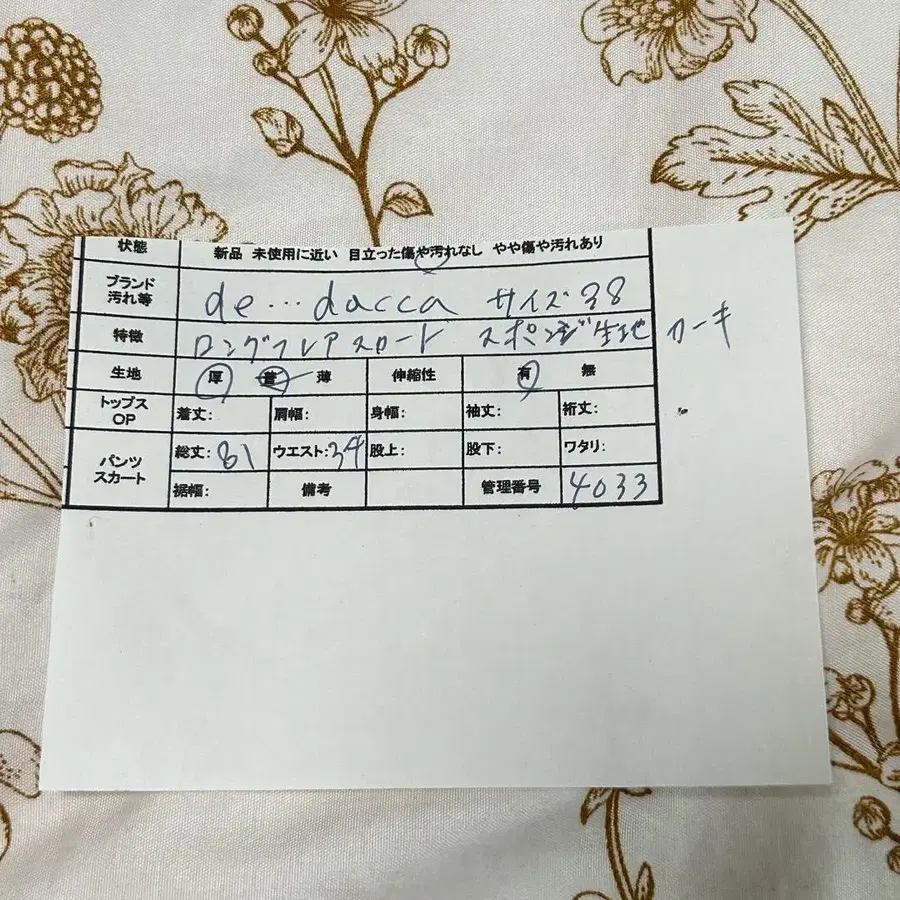 状態 新品 未使用に近い 目立った傷や汚れなし やや傷や汚れあり
ブランド 汚れ等 de…dacca サイズ38
特徴 ロングフレアスカート スポンジ生地 カーキ
生地 厚 普 薄 伸縮性 有 無
トップス OP 着丈: 肩幅: 身幅: 袖丈: 裄丈:
パンツ スカート 総丈:81 ウエスト:34 股上: 股下: ワタリ:
裾幅: 備考 管理番号 4033